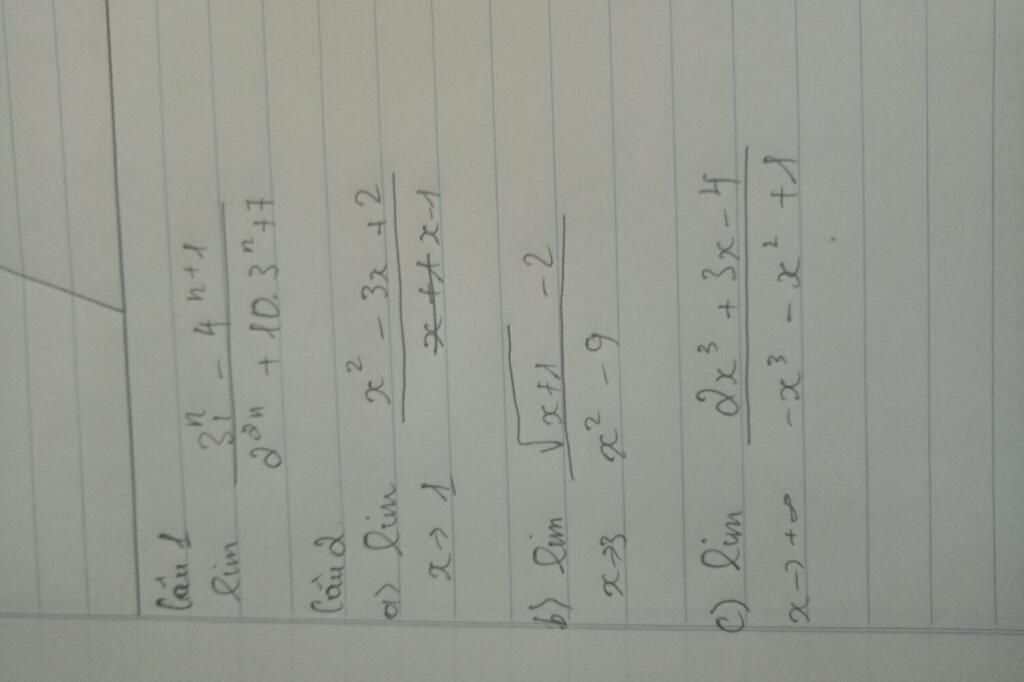 Câu 1
lim (3^n - 4^(n+1)) / (2^(2n) + 10.3^n + 7)
Câu 2
a) lim x→1 (x² - 3x + 2) / (x - 1)
b) lim x→3 (√(x+1) - 2) / (x² - 9)
c) lim x→+∞ (2x³ + 3x - 4) / (-x³ - x² + 1)